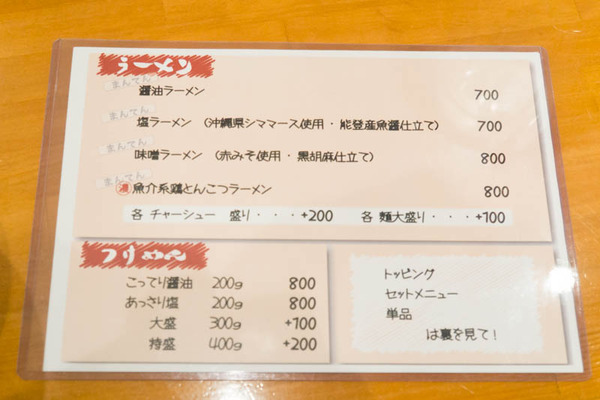 ラーメン
まんてん
醤油ラーメン 700
まんてん
塩ラーメン (沖縄県シママース使用・能登産魚醤仕立て) 700
まんてん
味噌ラーメン (赤みそ使用・黒胡麻仕立て) 800
まんてん
濃 魚介系鶏とんこつラーメン 800
各 チャーシュー 盛り・・・+200 各 麺大盛り・・・+100
つけめん
こってり醤油 200g 800
あっさり塩 200g 800
大盛 300g +100
特盛 400g +200
トッピング
セットメニュー
単品
は裏を見て!